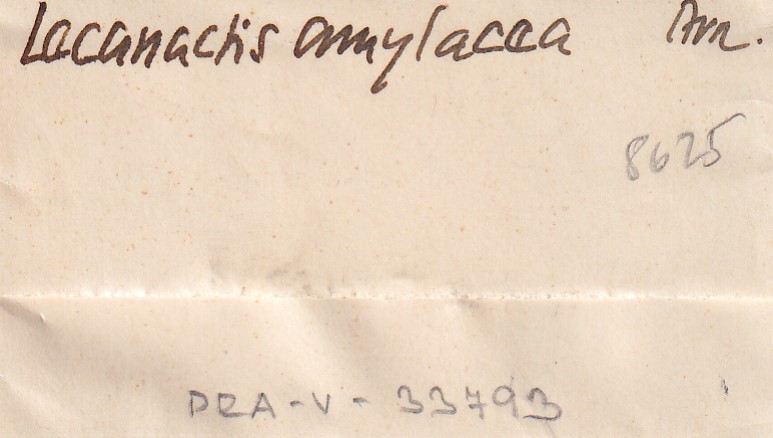 Lecanactis amylacea Arn.
8625
DRA-V-33793